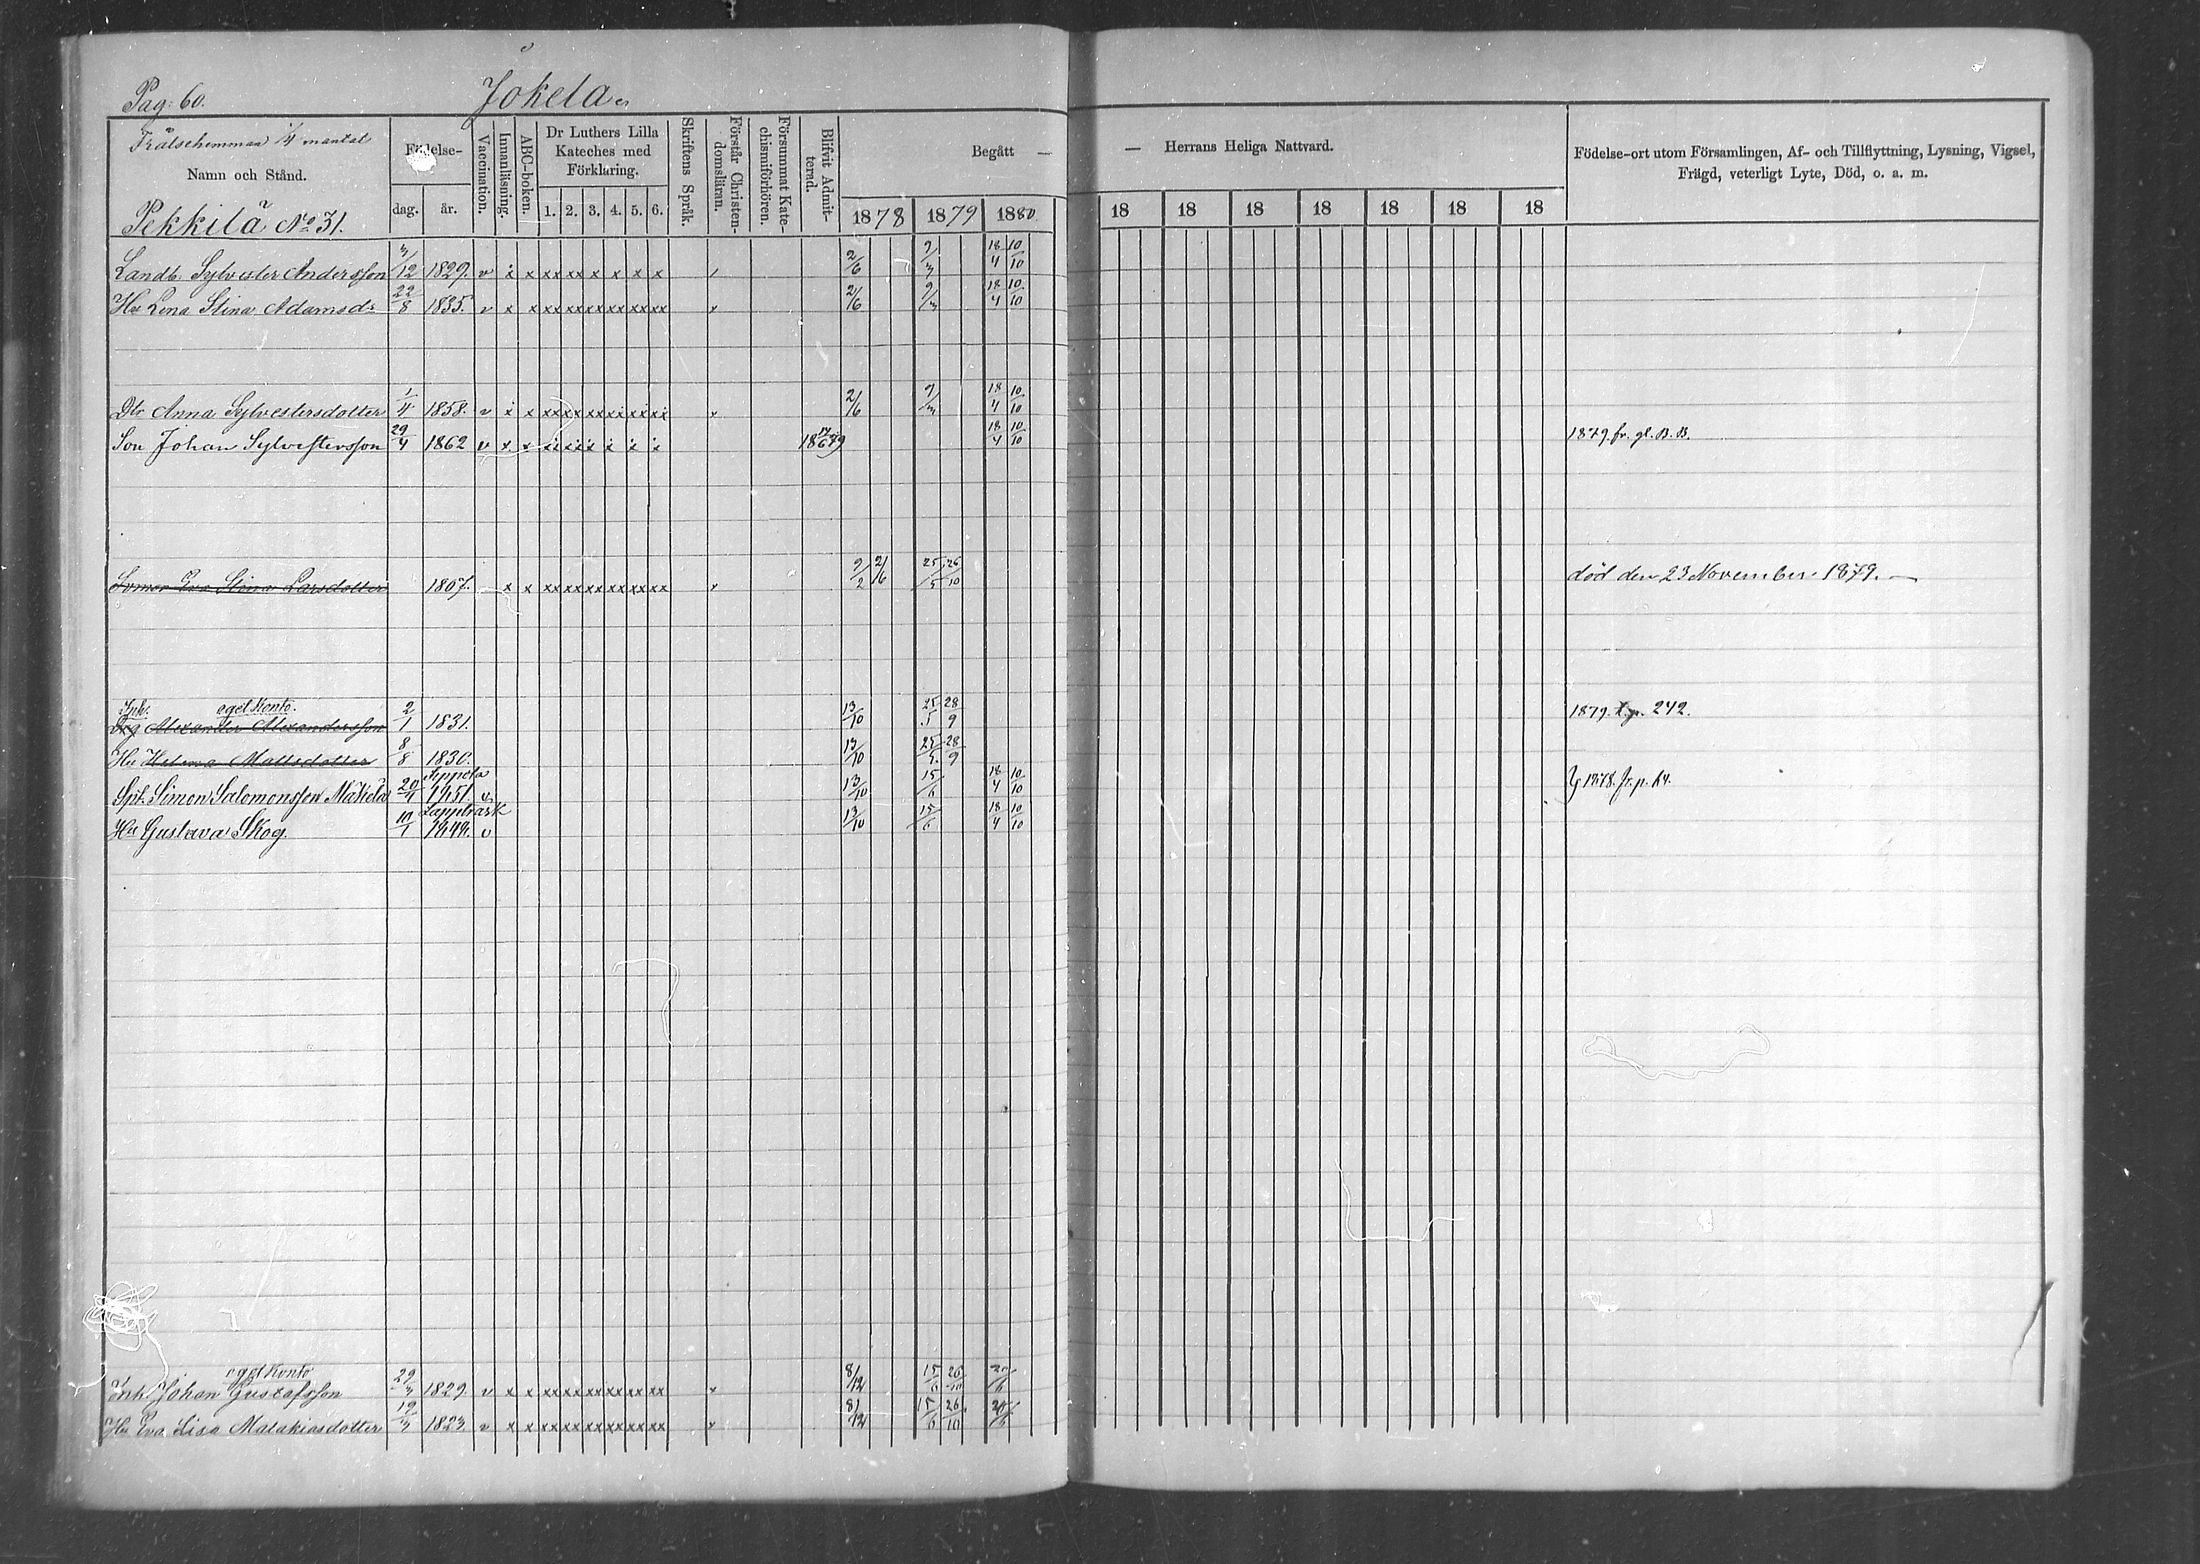 Pag: 60. Jokela
Frälsehemman 1/4 mantal
Namn och Stånd.
Födelse- dag. år.
Vaccination. Innanläsning. ABC-boken.
Dr Luthers Lilla Kateches med Förklaring.
1. 2. 3. 4. 5. 6.
Skriftens Språk. Förstår Christendomsläran. Försummat Katechismiförhören. Blifvit Admitterad.
Begått — — Herrans Heliga Nattvard.
1878 1879 1880 18 18 18 18 18 18 18
Födelse-ort utom Församlingen, Af- och Tillflyttning, Lysning, Vigsel,
Frägd, veterligt Lyte, Död, o. a. m.
Pekkilä No 31.
Landb. Sylvester Andersson 3/12 1829. v x x xx xx x x x x 2/6 9/3 18/4 10/10
Hu Lena Stina Adamsdr 22/8 1835. v x x xx xx xx xx xx xx 2/6 9/3 18/4 10/10
Dtr Anna Sylvestersdotter 1/4 1858. v x x xx xx xx xx xx xx 2/6 9/3 18/4 10/10
Son Johan Sylvestersson 29/4 1862 v x x 18 79 18/4 10/10 1879. fr. gl. B. B.
Eva Stina Larsdotter 1807. x x xx xx xx xx xx xx 9/2 2/6 25/5 26/10 död den 23 November 1879. —
Inh. eget Konto.
Drg Alexander Alexandersson 2/1 1831. 13/10 25/5 28/9 1879. t. p. 242.
Hu Helena Mattsdotter 8/8 1830. 13/10 25/5 28/9
Sippola
Spl. Simon Salomonsson Mäkelä 20/4 1851. v 13/10 15/6 18/4 10/10 1878. fr. p. 64.
Lappträsk
Hu Gustava Skog. 10/1 v 13/10 15/6 18/4 10/10
eget Konto
Inh Johan Gustafsson 29/3 1829. v x x xx xx xx xx xx xx 8/12 15/6 26/10 20/6
Hu Eva Lisa Malakiasdotter 19/3 1823. v x x xx xx xx xx xx xx 8/12 15/6 26/10 20/6